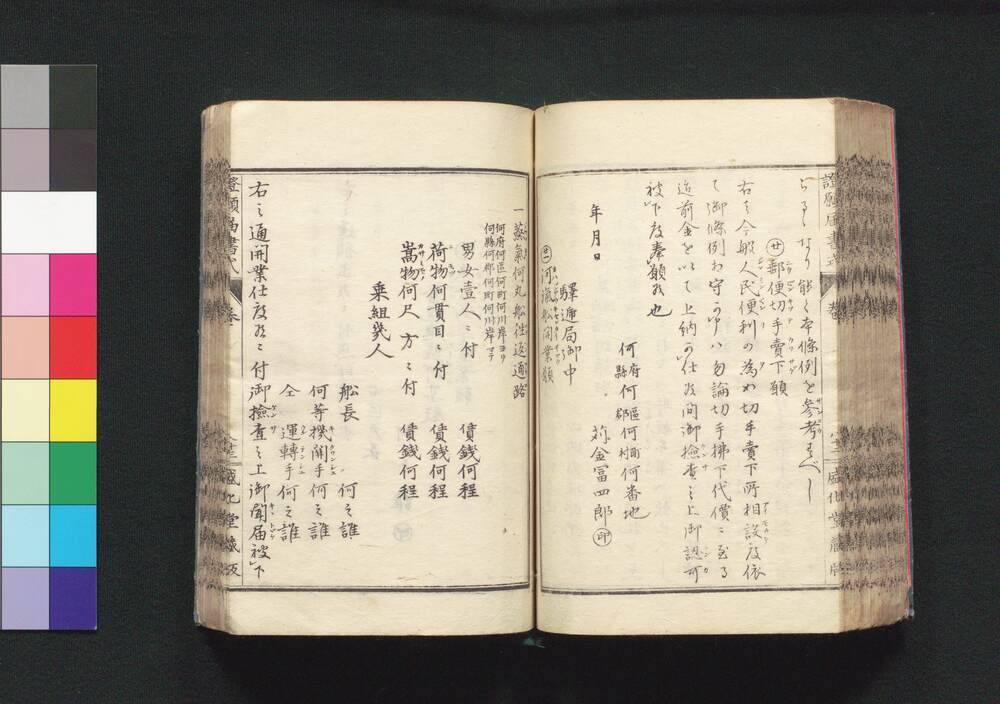 らるゝなり能く本條例を参考すべし
㊁郵便切手賣下願
右ハ今般人民便利の為め切手賣下所相設度依
て御條例お守可申ハ勿論切手拂下代價ニ至る
迄前金を以て上納可仕候間御撿査之上御認可
被下度奉願候也
何府縣何區郡何町村何番地
苅金冨四郎㊞
年月日
驛逓局御中
河滊船開業願
一蒸氣何丸船往返通路
何府何區何町何川岸ヨリ
何縣何郡何町何川岸マデ
男女壹人ニ付 賃錢何程
荷物何貫目ニ付 賃錢何程
嵩物何尺方ニ付 賃錢何程
乗組幾人
船長 何之誰
何等機關手何之誰
仝運轉手何之誰
右之通開業仕度候ニ付御撿査之上御聞届被下
證願届書式 巻
盛化堂藏版